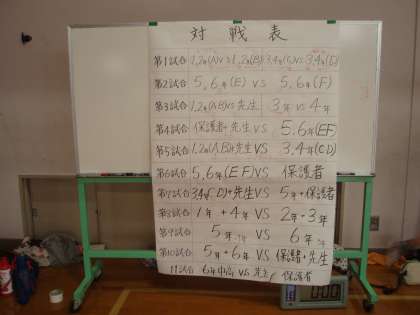 対戦表
第1試合 1,2年(A)VS1,2年(B) 3,4年(C)VS3,4年(D)
第2試合 5,6年(E) VS 5,6年(F)
第3試合 1,2年(AB)VS先生 3年VS4年
第4試合 保護者+先生VS 5,6年(EF)
第5試合 1,2年(A,B)+先生VS 3,4年(CD)
第6試合 5,6年(EF)VS 保護者
第7試合 3,4年(CD)+先生VS 5年+保護者
第8試合 1年+4年VS 2年+3年
第9試合 5年 VS 6年
第10試合 5年+6年VS保護者+先生
11試合 6年中高 VS 先生 保護者
0.00